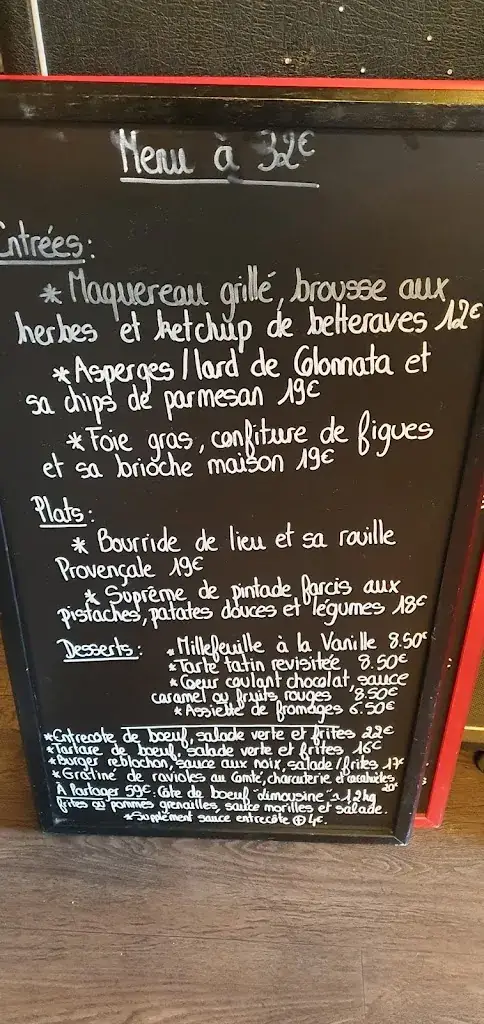 Menu à 32€
Entrées :
* Maquereau grillé, brousse aux
herbes et ketchup de betteraves 12€
* Asperges / lard de Colonnata et
sa chips de parmesan 19€
* Foie gras, confiture de figues
et sa brioche maison 19€
Plats :
* Bourride de lieu et sa rouille
Provençale 19€
* Suprême de pintade farcis aux
pistaches, patates douces et légumes 18€
Desserts : * Millefeuille à la Vanille 8.50€
* Tarte tatin revisitée 8.50€
* Coeur coulant chocolat, sauce
caramel ou fruits rouges 8.50€
* Assiette de fromages 6.50€
* Entrecote de boeuf, salade verte et frites 22€
* Tartare de boeuf, salade verte et frites 16€
* Burger reblochon, sauce aux noix, salade / frites 17€
* Gratiné de ravioles au Comté, charcuterie et
20€
A Partager 59€. Côte de boeuf "Limousine" 1.2kg
frites ou pommes grenailles, sauce morilles et salade.
* Supplément sauce entrecôte + 4€.